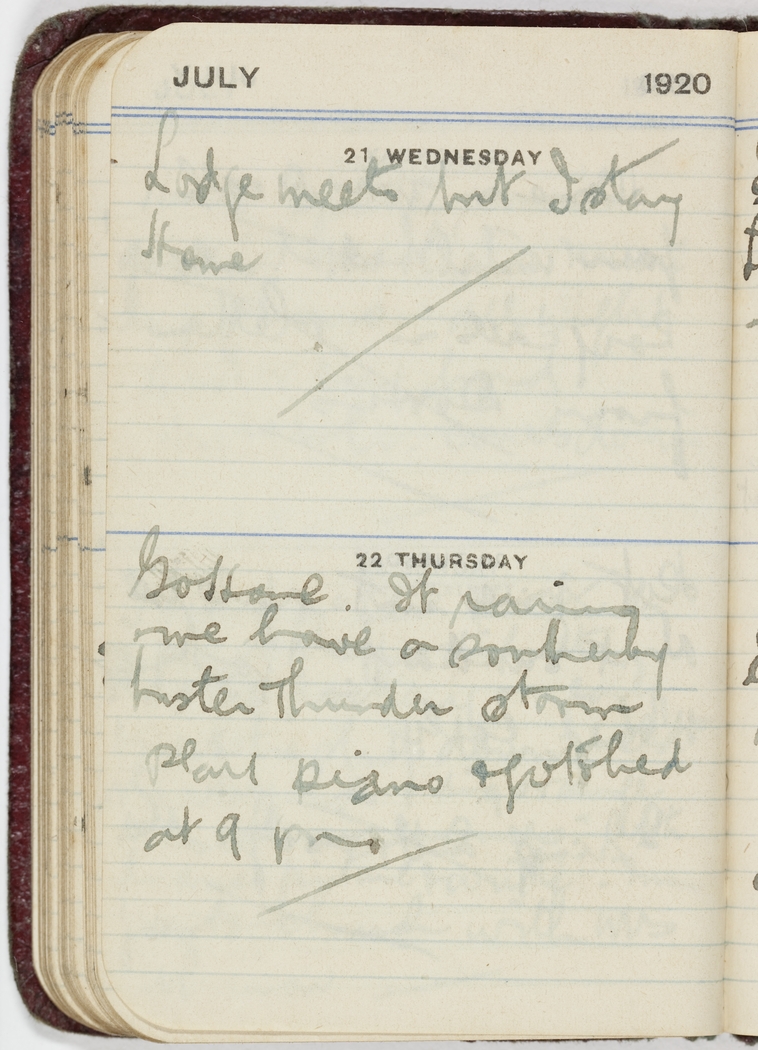 JULY 1920
21 WEDNESDAY
Lodge meets but I stay
Home
22 THURSDAY
Go Home. It raining
we have a southerly
buster Thunder storm
Play piano & go to bed
at 9 pm